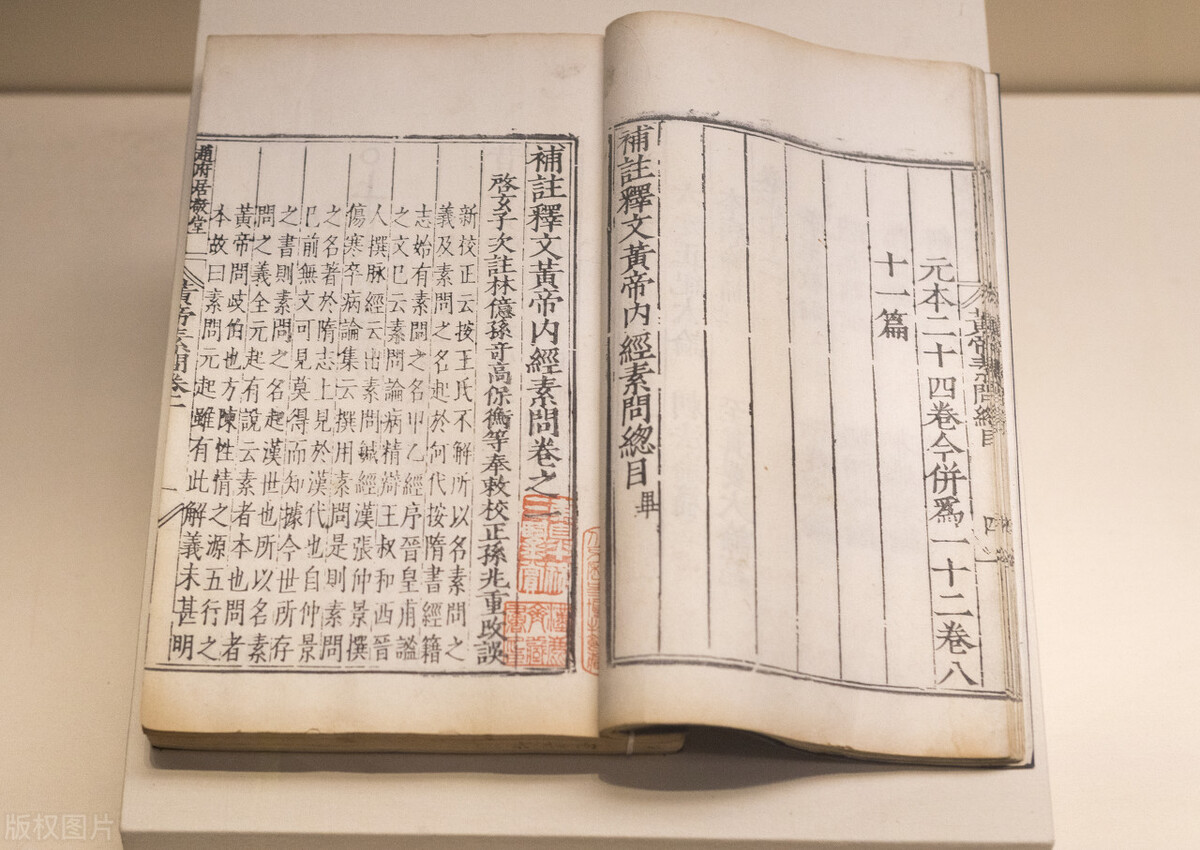 黃帝素問總目 四
元本二十四卷今併爲一十二卷八
十一篇
補註釋文黃帝内經素問總目畢
補註釋文黃帝内經素問卷之一
啓玄子次註林億孫竒高保衡等奉敕校正孫兆重改誤
新校正云按王氏不解所以名素問之
義及素問之名起於何代按隋書經籍
志始有素問之名甲乙經序晉皇甫謐
之文已云素問論病精辯王叔和西晉
人撰脉經云出素問鍼經漢張仲景撰
傷寒卒病論集云撰用素問是則素問
之名著於隋志上見於漢代也自仲景
已前無文可見莫得而知據今世所存
之書則素問之名起漢世也所以名素
問之義全元起有說云素者本也問者
黃帝問歧伯也方陳性情之源五行之
本故曰素問元起雖有此解義未甚明
趙府居敬堂
黃帝素問卷一
版权图片